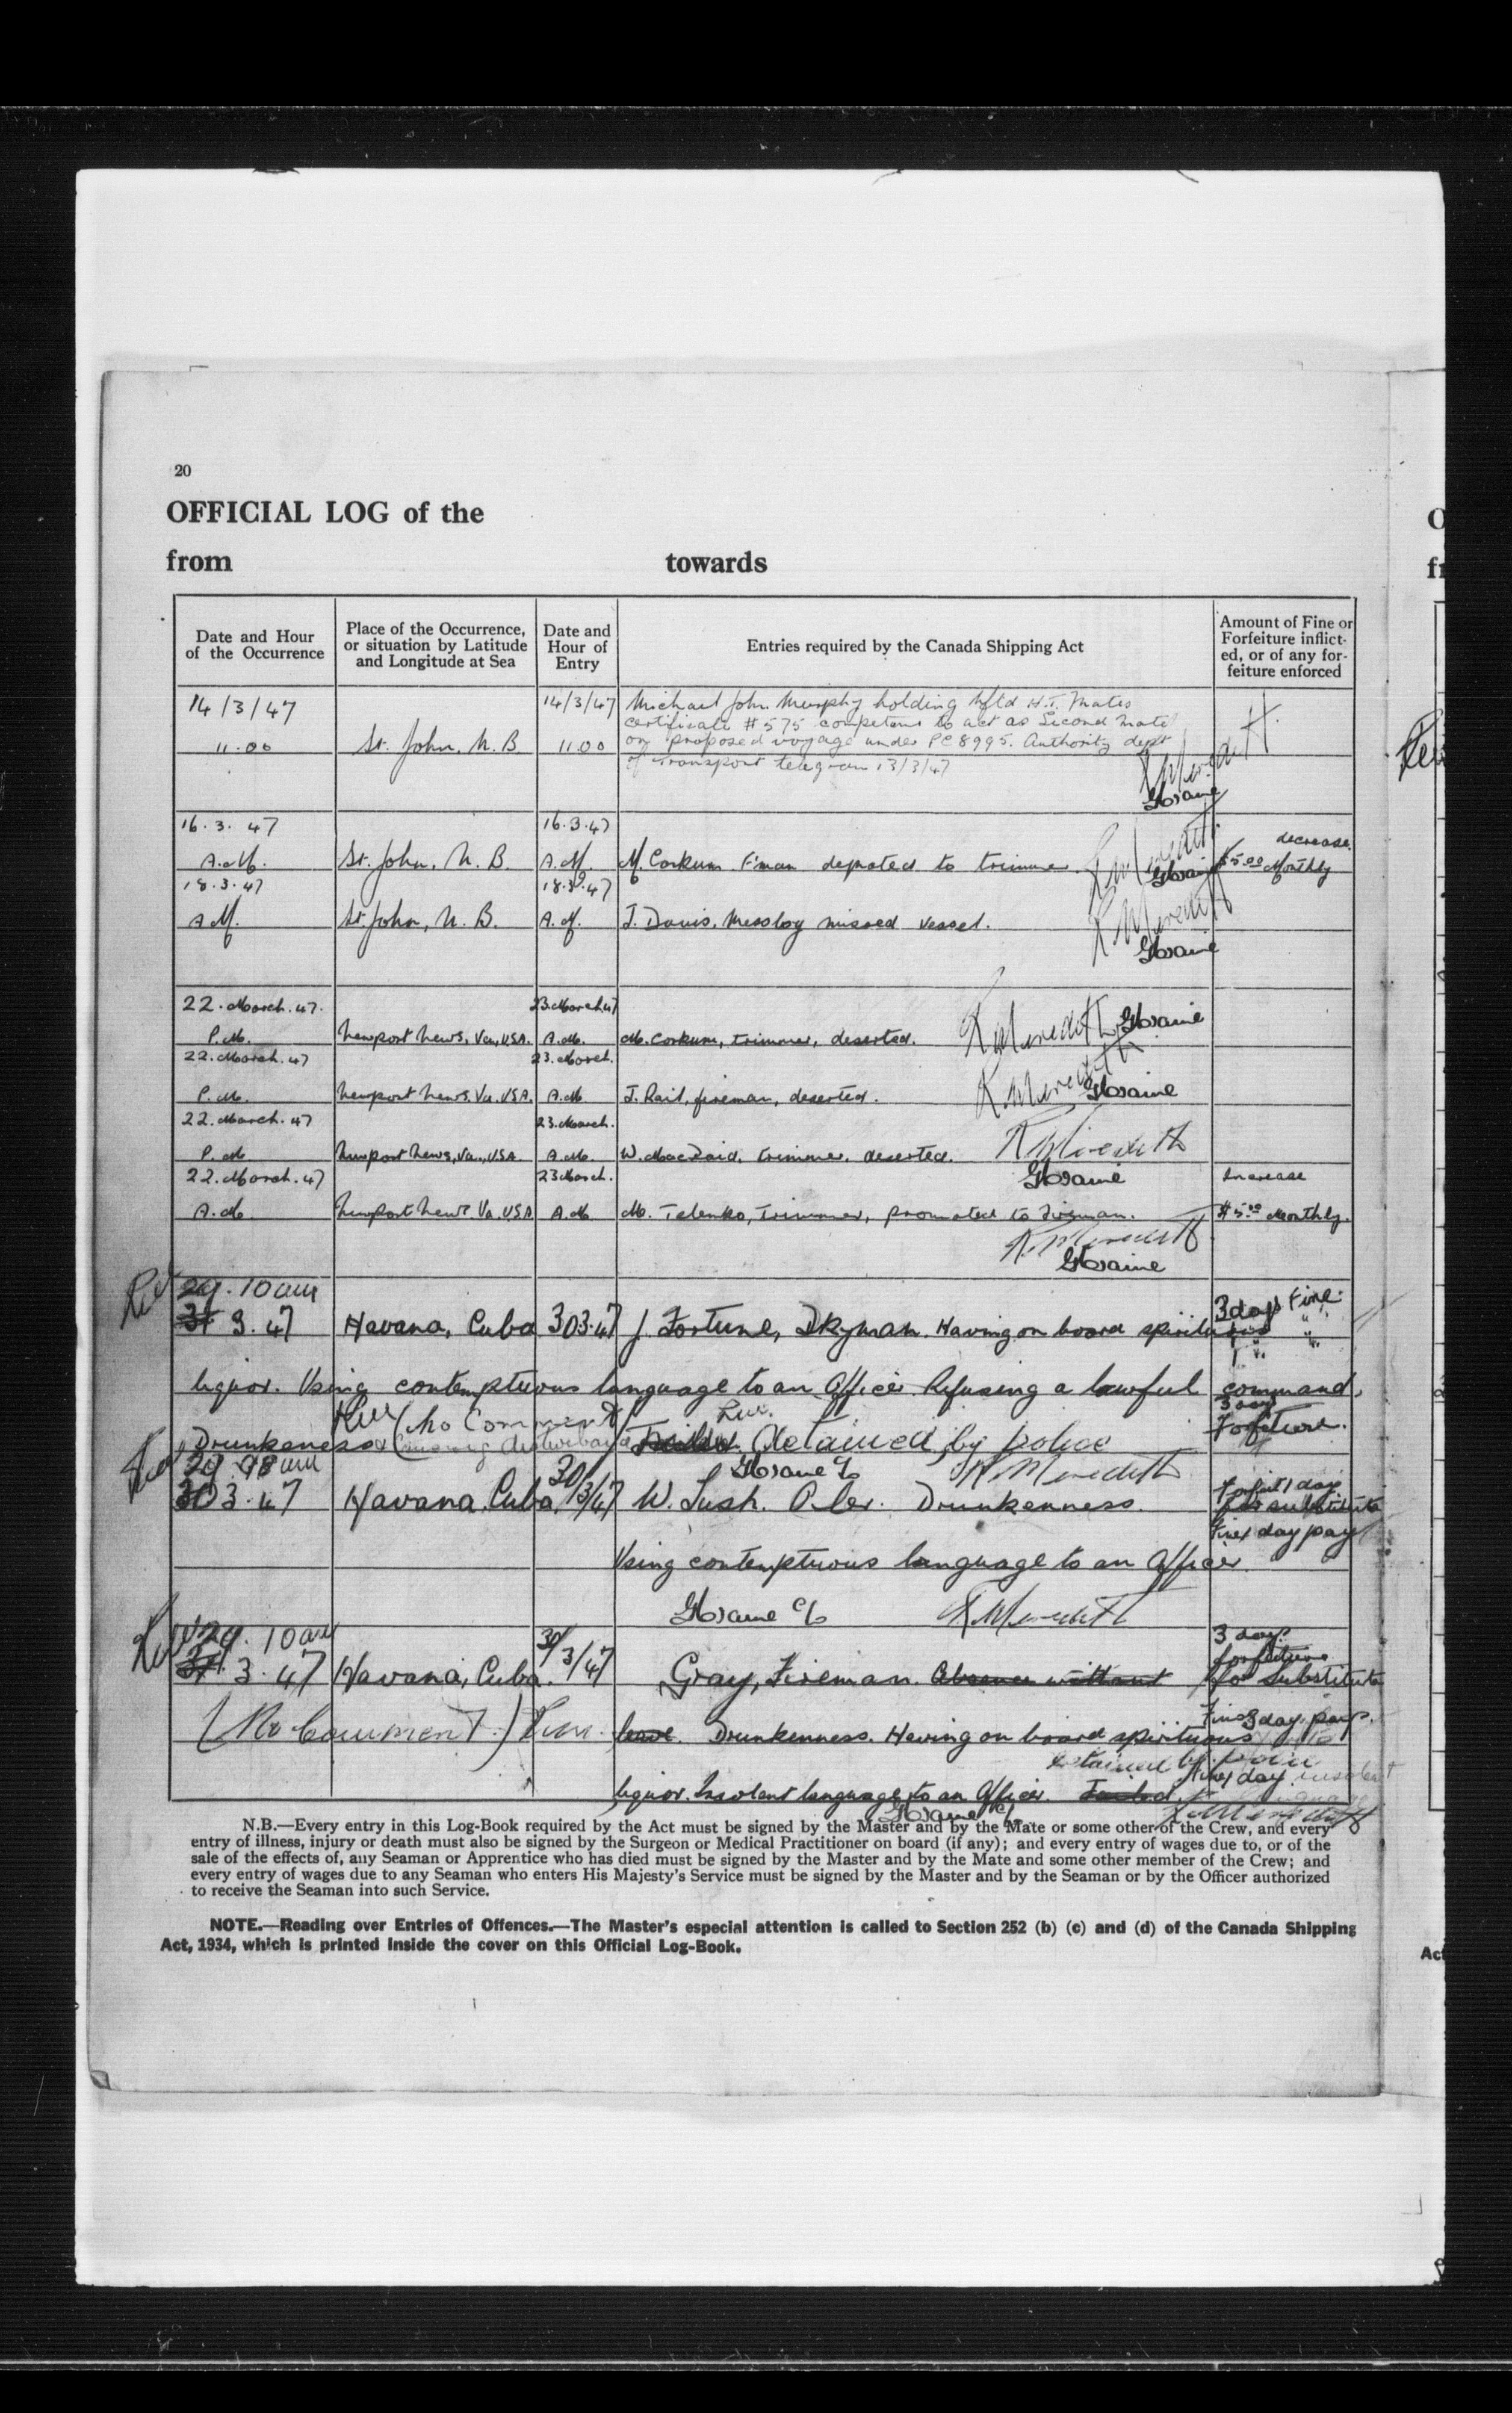 20
OFFICIAL LOG of the
from towards
Date and Hour of the Occurrence
Place of the Occurrence, or situation by Latitude and Longitude at Sea
Date and Hour of Entry
Entries required by the Canada Shipping Act
Amount of Fine or Forfeiture inflicted, or of any forfeiture enforced
14/3/47 14/3/47 Michael John Murphy holding Nfld H.T. Mates
certificate #575 competent to act as Second Mate
11.00 St. John, N.B. 11.00 on proposed voyage under PC 8995. Authority dept
of Transport telegram 13/3/47
K Meredith
16.3.47 16.3.47 decrease
A.M. St. John, N.B. A.M. M. Corkum F'man demoted to trimmer. K Meredith $5.00 Monthly
18.3.47 18.3.47
A.M. St. John, N.B. A.M. J. Davis, Messboy missed vessel. K Meredith
22.March.47. 23.March.47
P.M. Newport News, Va, USA. A.M. M. Corkum, trimmer, deserted. K Meredith
22.March.47 23.March.
P.M. Newport News. Va. USA. A.M. J. Rail, fireman, deserted. K Meredith
22.March.47 23.March.
P.M. Newport News, Va., USA. A.M. W. MacDaid, trimmer, deserted. K Meredith
22.March.47 23 March. Increase
A.M. Newport News. Va. USA A.M. M. Telenko, trimmer, promoted to Fireman. $5.00 Monthly.
K. Meredith
29. 10 am
31 3.47 Havana, Cuba 30 3.47 J. Fortune, Dkyman. Having on board spirituous 3 days Fine
liquor. Using contemptuous language to an Officer. Refusing a lawful command,
(No Comment) 3 days
Drunkeness & Causing disturbance Jailed. Detained by police Forfeiture.
K Meredith
29 am 30/3/47 Forfeit 1 day
30 3.47 Havana. Cuba. W. Lush. Oiler. Drunkenness. for substitute
Fine 1 day pay
Using contemptuous language to an Officer.
K Meredith
29. 10 am 30/3/47 3 days forfeiture
31. 3.47 Havana, Cuba. Gray, Fireman. Absence without for Substitute
(No Comment.) leave. Drunkenness. Having on board spirituous Fine 3 day pay.
detained by police Fine 1 day insolent
liquor. Insolent language to an Officer. Jailed. language
K Meredith
N.B.—Every entry in this Log-Book required by the Act must be signed by the Master and by the Mate or some other of the Crew, and every
entry of illness, injury or death must also be signed by the Surgeon or Medical Practitioner on board (if any); and every entry of wages due to, or of the
sale of the effects of, any Seaman or Apprentice who has died must be signed by the Master and by the Mate and some other member of the Crew; and
every entry of wages due to any Seaman who enters His Majesty's Service must be signed by the Master and by the Seaman or by the Officer authorized
to receive the Seaman into such Service.
NOTE.—Reading over Entries of Offences.—The Master's especial attention is called to Section 252 (b) (c) and (d) of the Canada Shipping
Act, 1934, which is printed inside the cover on this Official Log-Book.